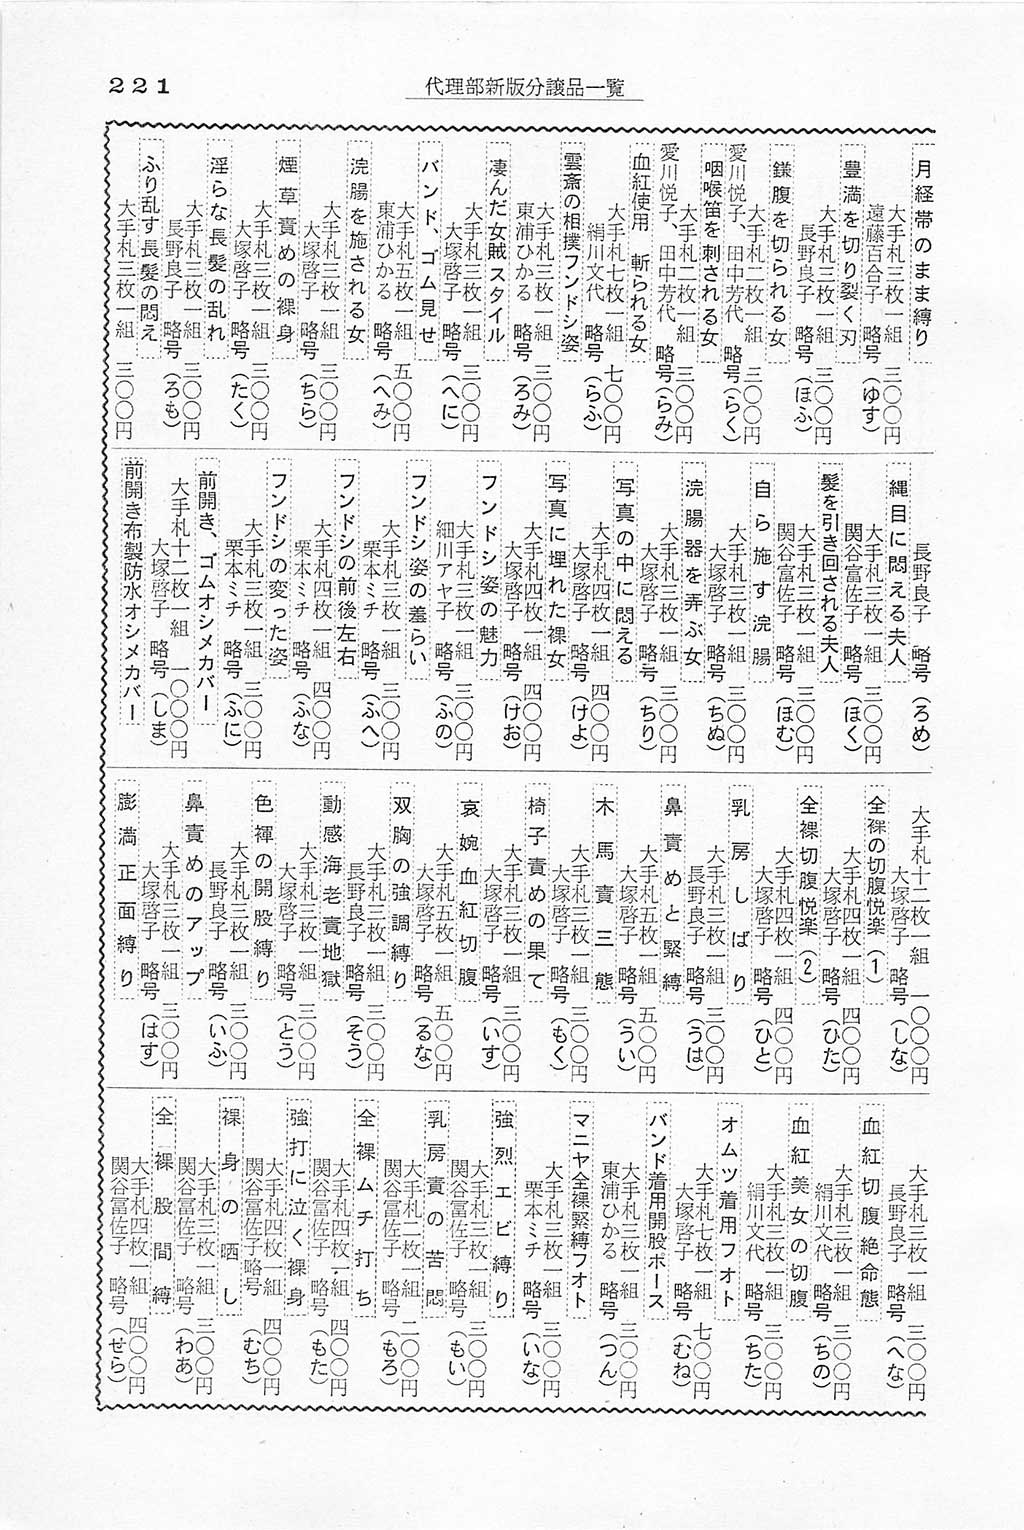 221
代理部新版分譲品一覧
月経帯のまま縛り
大手札三枚一組 三〇〇円
遠藤百合子 略号(ゆす)
豊満を切り裂く刃
大手札三枚一組 三〇〇円
長野良子 略号(ほふ)
鎌腹を切られる女
大手札二枚一組 三〇〇円
愛川悦子、田中芳代 略号(らく)
咽喉笛を刺される女
大手札二枚一組 三〇〇円
愛川悦子、田中芳代 略号(らみ)
血紅使用 斬られる女
大手札七枚一組 七〇〇円
絹川文代 略号(らふ)
雲斎の相撲フンドシ姿
大手札三枚一組 三〇〇円
東浦ひかる 略号(ろみ)
凄んだ女賊スタイル
大手札三枚一組 三〇〇円
大塚啓子 略号(へに)
バンド、ゴム見せ
大手札五枚一組 五〇〇円
東浦ひかる 略号(へみ)
浣腸を施される女
大手札三枚一組 三〇〇円
大塚啓子 略号(ちら)
煙草責めの裸身
大手札三枚一組 三〇〇円
大塚啓子 略号(たく)
淫らな長髪の乱れ
大手札三枚一組 三〇〇円
長野良子 略号(ろも)
ふり乱す長髪の悶え
大手札三枚一組 三〇〇円
長野良子 略号(ろめ)
縄目に悶える夫人
大手札三枚一組 三〇〇円
関谷富佐子 略号(ほく)
髪を引き回される夫人
大手札三枚一組 三〇〇円
関谷富佐子 略号(ほむ)
自ら施す浣腸
大手札三枚一組 三〇〇円
大塚啓子 略号(ちぬ)
浣腸器を弄ぶ女
大手札三枚一組 三〇〇円
大塚啓子 略号(ちり)
写真の中に悶える
大手札四枚一組 四〇〇円
大塚啓子 略号(けよ)
写真に埋れた裸女
大手札四枚一組 四〇〇円
大塚啓子 略号(けお)
フンドシ姿の魅力
大手札三枚一組 三〇〇円
細川アヤ子 略号(ふの)
フンドシ姿の羞らい
大手札三枚一組 三〇〇円
栗本ミチ 略号(ふへ)
フンドシの前後左右
大手札四枚一組 四〇〇円
栗本ミチ 略号(ふな)
フンドシの変った姿
大手札三枚一組 三〇〇円
栗本ミチ 略号(ふに)
前開き、ゴムオシメカバー
大手札十二枚一組 一〇〇〇円
大塚啓子 略号(しま)
前開き布製防水オシメカバー
大手札十二枚一組 一〇〇〇円
大塚啓子 略号(しな)
全裸の切腹悦楽(1)
大手札四枚一組 四〇〇円
大塚啓子 略号(ひた)
全裸切腹悦楽(2)
大手札四枚一組 四〇〇円
大塚啓子 略号(ひと)
乳房しばり
大手札三枚一組 三〇〇円
長野良子 略号(うは)
鼻責めと緊縛
大手札五枚一組 五〇〇円
大塚啓子 略号(うい)
木馬責三態
大手札三枚一組 三〇〇円
大塚啓子 略号(もく)
椅子責めの果て
大手札三枚一組 三〇〇円
大塚啓子 略号(いす)
哀婉血紅切腹
大手札五枚一組 五〇〇円
大塚啓子 略号(るな)
双胸の強調縛り
大手札三枚一組 三〇〇円
長野良子 略号(そう)
動感海老責地獄
大手札三枚一組 三〇〇円
大塚啓子 略号(とう)
色褌の開股縛り
大手札三枚一組 三〇〇円
長野良子 略号(いふ)
鼻責めのアップ
大手札三枚一組 三〇〇円
大塚啓子 略号(はす)
膨満正面縛り
大手札三枚一組 三〇〇円
長野良子 略号(へな)
血紅切腹絶命態
大手札三枚一組 三〇〇円
絹川文代 略号(ちの)
血紅美女の切腹
大手札三枚一組 三〇〇円
絹川文代 略号(ちた)
オムツ着用フオト
大手札七枚一組 七〇〇円
大塚啓子 略号(むね)
バンド着用開股ポーズ
大手札三枚一組 三〇〇円
東浦ひかる 略号(つん)
マニヤ全裸緊縛フオト
大手札三枚一組 三〇〇円
栗本ミチ 略号(いな)
強烈エビ縛り
大手札三枚一組 三〇〇円
関谷富佐子 略号(もい)
乳房責の苦悶
大手札二枚一組 二〇〇円
関谷富佐子 略号(もろ)
全裸ムチ打ち
大手札四枚一組 四〇〇円
関谷富佐子 略号(もた)
強打に泣く裸身
大手札四枚一組 四〇〇円
関谷富佐子 略号(むち)
裸身の晒し
大手札三枚一組 三〇〇円
関谷富佐子 略号(わあ)
全裸股間縛
大手札四枚一組 四〇〇円
関谷富佐子 略号(せら)